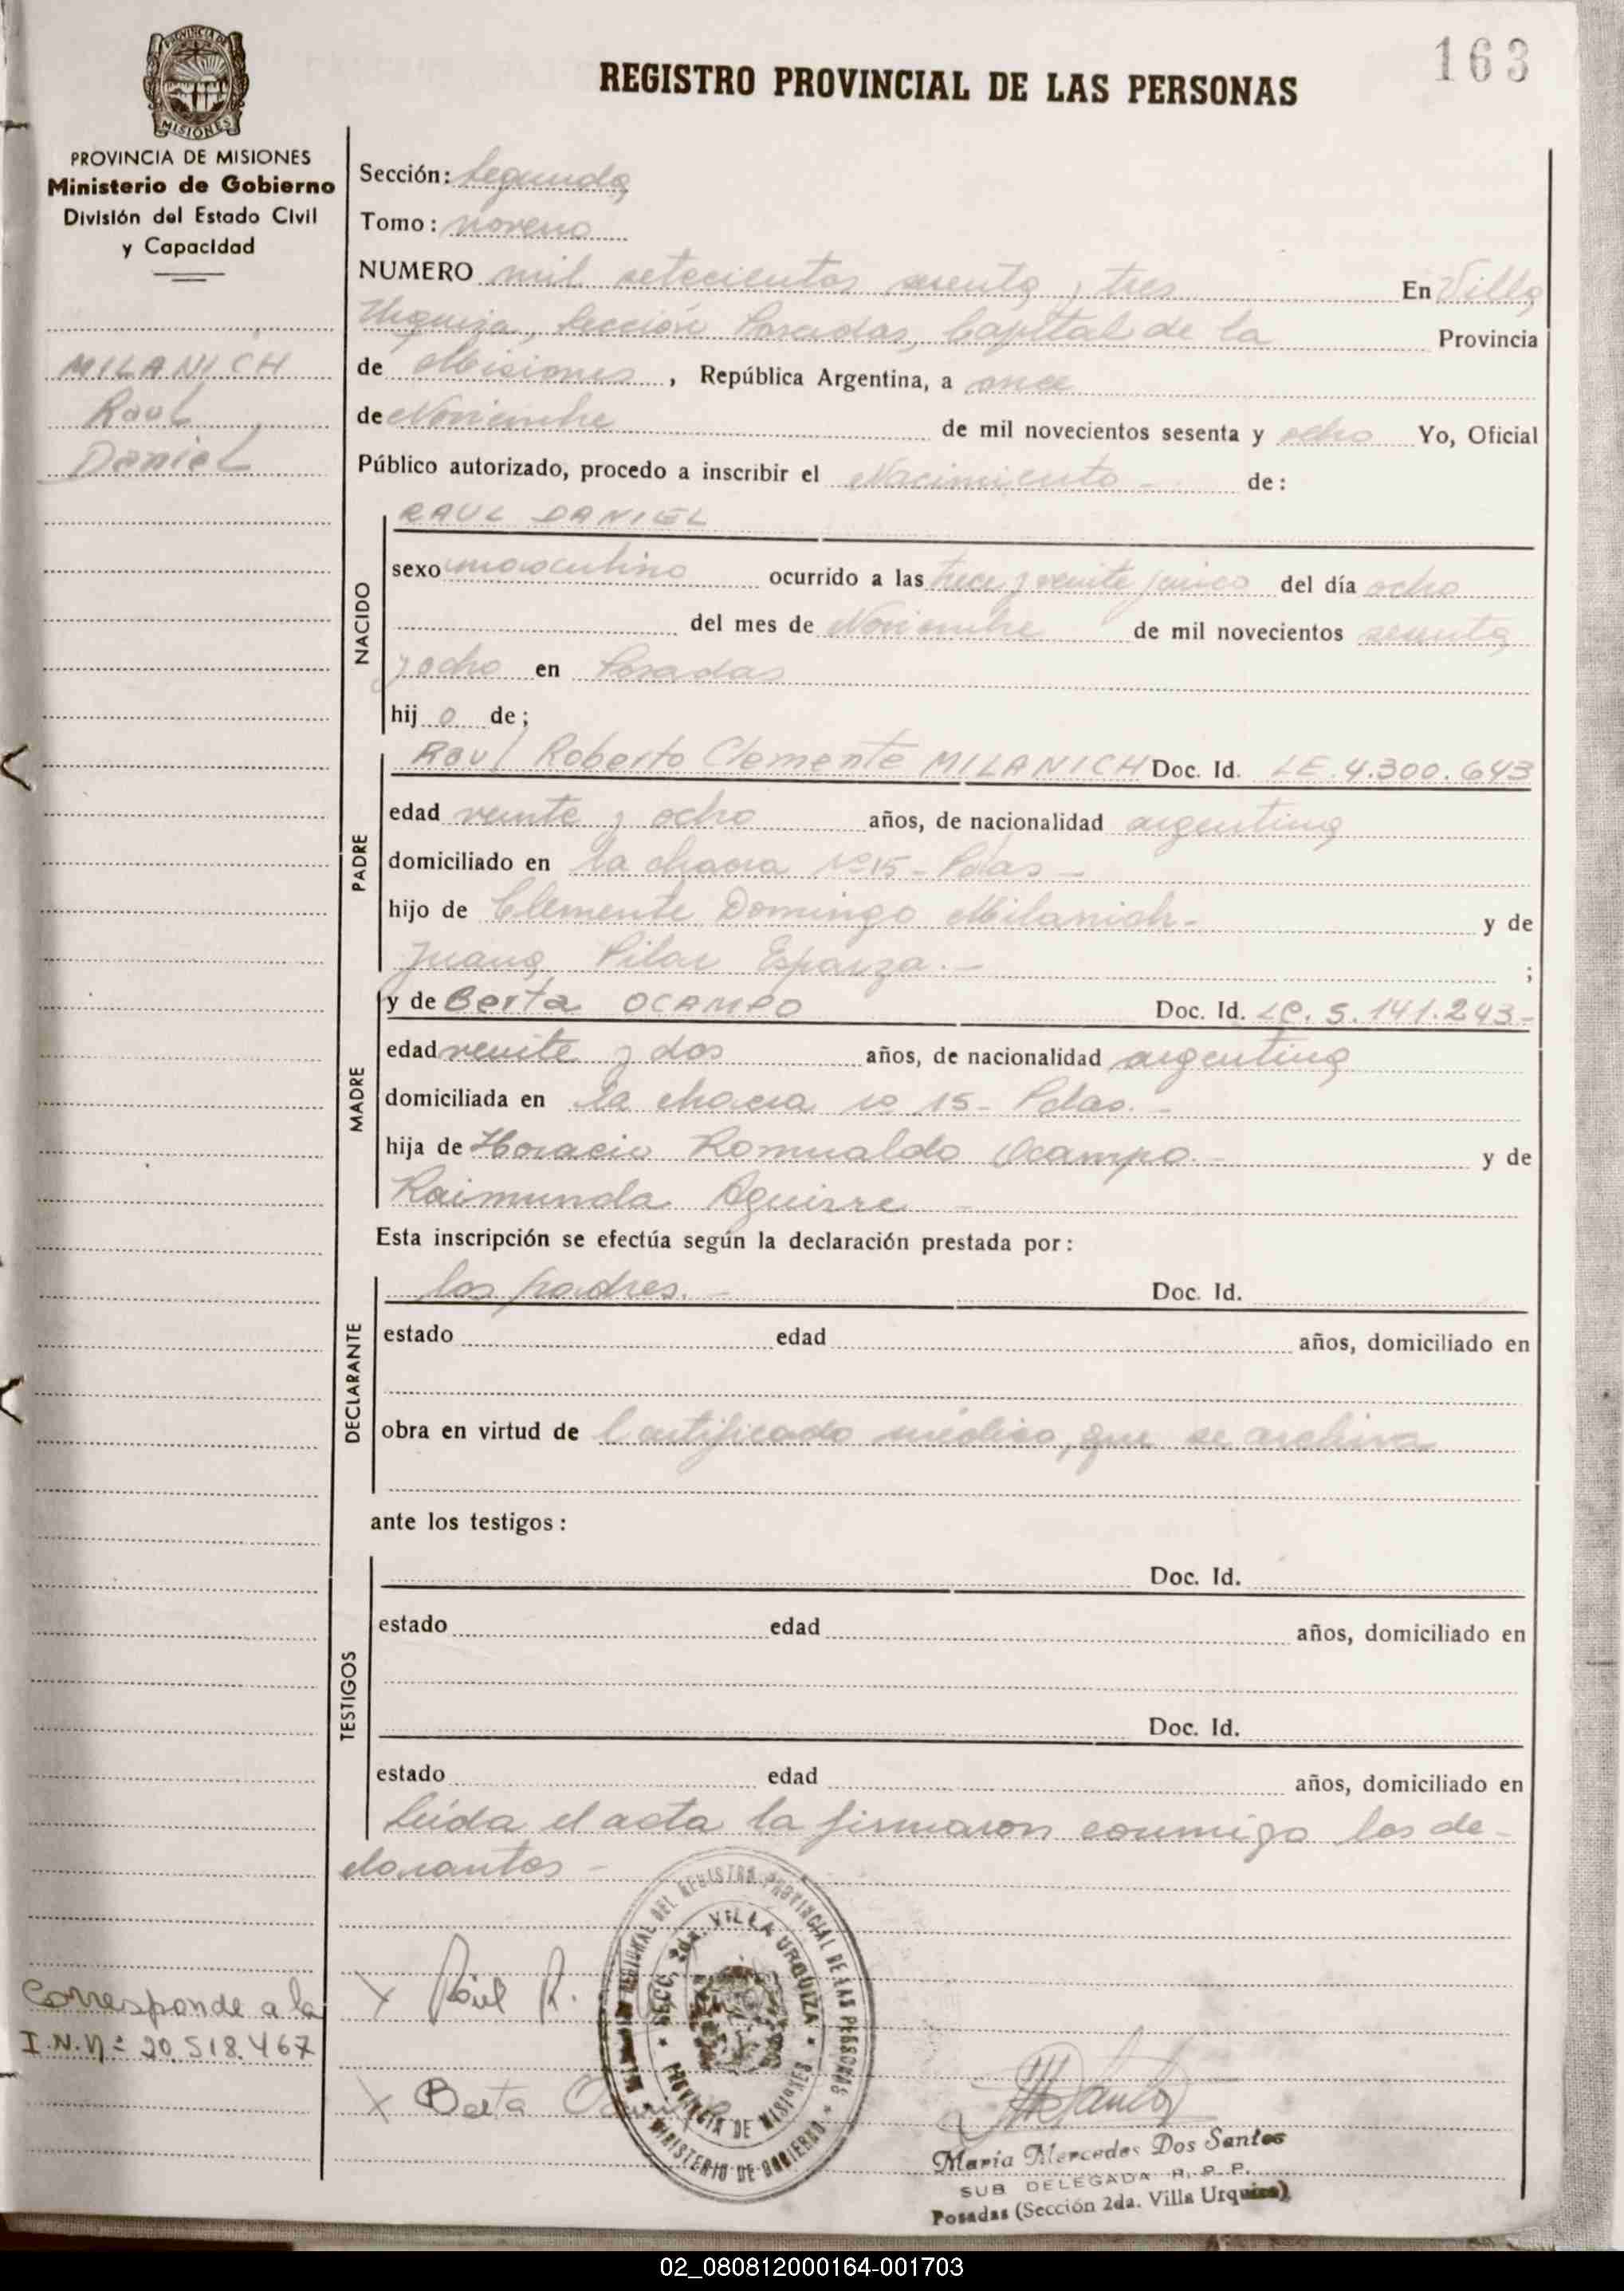 163
REGISTRO PROVINCIAL DE LAS PERSONAS
PROVINCIA DE MISIONES
PROVINCIA DE MISIONES
Ministerio de Gobierno
División del Estado Civil
y Capacidad
MILANICH
Raul
Daniel
Sección: Segunda
Tomo: noveno
NUMERO mil setecientos sesenta y tres En Villa
Urquiza, Sección Posadas, Capital de la Provincia
de Misiones, República Argentina, a once
de Noviembre de mil novecientos sesenta y ocho Yo, Oficial
Público autorizado, procedo a inscribir el Nacimiento - de:
NACIDO
RAUL DANIEL
sexo masculino ocurrido a las trece y veinte y cinco del día ocho
del mes de Noviembre de mil novecientos sesenta
y ocho en Posadas
hij o de;
PADRE
Raul Roberto Clemente MILANICH Doc. Id. LE. 4.300.643
edad veinte y ocho años, de nacionalidad argentina
domiciliado en la chacra Nº 15 - Pdas -
hijo de Clemente Domingo Milanich - y de
Juana Pilar Esparza. - ;
MADRE
y de Berta OCAMPO Doc. Id. LC. 5.141.243-
edad veinte y dos años, de nacionalidad argentina
domiciliada en la chacra nº 15 - Pdas. -
hija de Horacio Romualdo Ocampo. - y de
Raimunda Aguirre -
Esta inscripción se efectúa según la declaración prestada por:
DECLARANTE
los padres. - Doc. Id.
estado edad años, domiciliado en
obra en virtud de Certificado médico, que se archiva
ante los testigos:
TESTIGOS
Doc. Id.
estado edad años, domiciliado en
Doc. Id.
estado edad años, domiciliado en
Leída el acta la firmaron conmigo los de-
clarantes -
Corresponde a la
I.N.Nº 20.518.467
X Raúl R.
X Berta Ocampo
REGIONAL DEL REGISTRO PROVINCIAL DE LAS PERSONAS
SECC. 2da. VILLA URQUIZA
PROVINCIA DE MISIONES
MINISTERIO DE GOBIERNO
María Mercedes Dos Santos
SUB DELEGADA R. P. P.
Posadas (Sección 2da. Villa Urquiza)
02_080812000164-001703